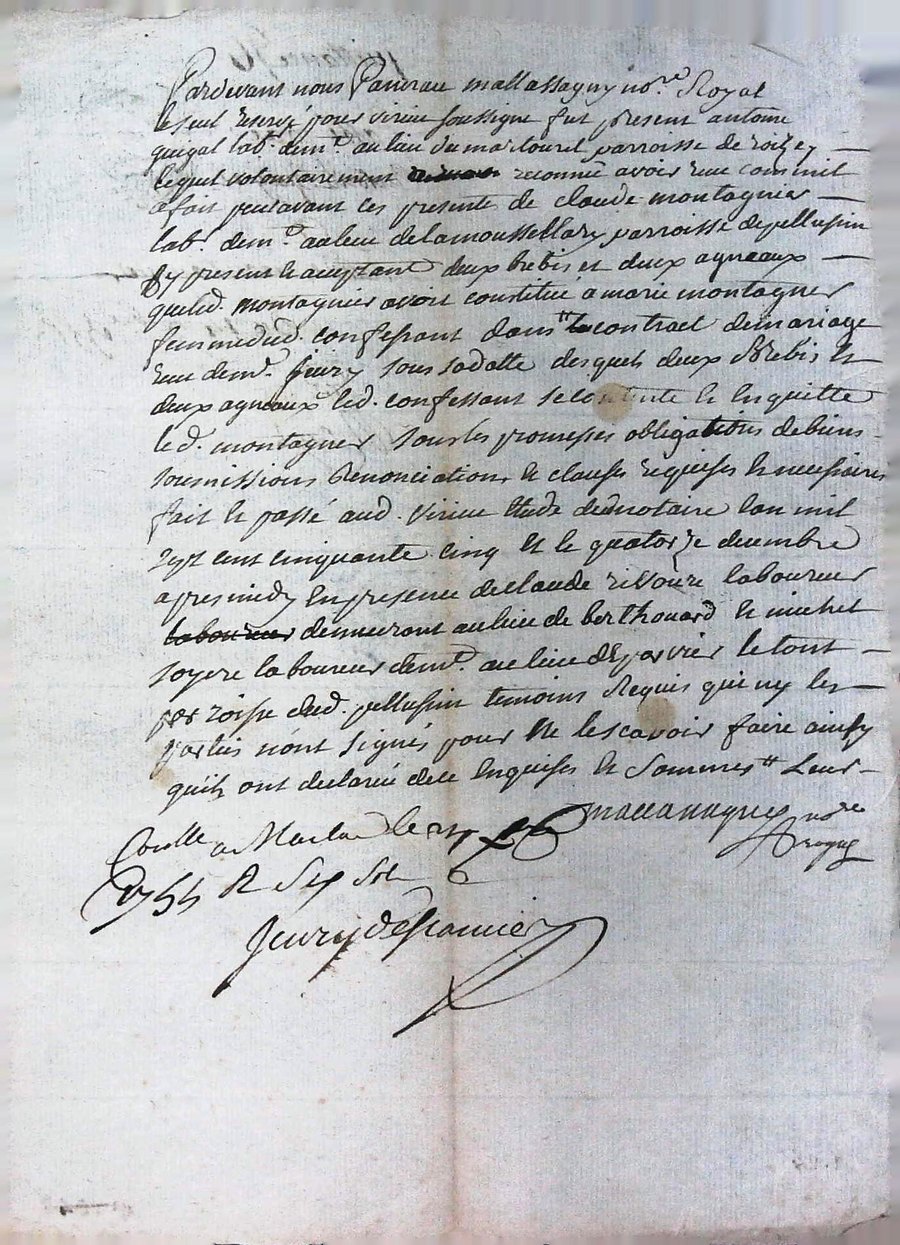 Pardevant nous Pancrau mallassagny no.re Royal
le seul reservé pour virieu soussigne fut present antoine
quegat lab.r dem.t au lieu du martouret parroisse de roizey
lequel volontairement reconneu avoir reue coms mil
a fait peu avant ces presente de claude montagnier
lab.r dem.t au lieu de lamoussellary parroisse de pellussin
sy present le aceptant deux brebis et deux agneaux
queled. montagnier avoit constitué a marie montagner
femme dud. confessant dans le contract de mariage
reue de m.e Jeury sous sa dotte desquels deux Brebis et
deux agneaux led. confessant se contente le enquitte
led. montagner sous les promesses obligations de biens
soumissions Renonciations et clauses requises et necessaires
fait le passé aud. virieu etude du notaire lan mil
sept cent cinquante cinq et le quatorze decembre
apres midy en presence de Claude rivoire laboureur
demeurant au lieu de berthouard et michel
soyere laboureur dem.t au lieu de le tout
parroisse dud. pellussin temoins Requis qui ny les
parties n'ont signés pour ne le scavoir faire ainsy
qu'ils ont declarée de ce enquises et sommes.tt Leur
mallassagny no.re royal
Conlle a Marlac le
1755 R Sep sol
Jeury Desgranier